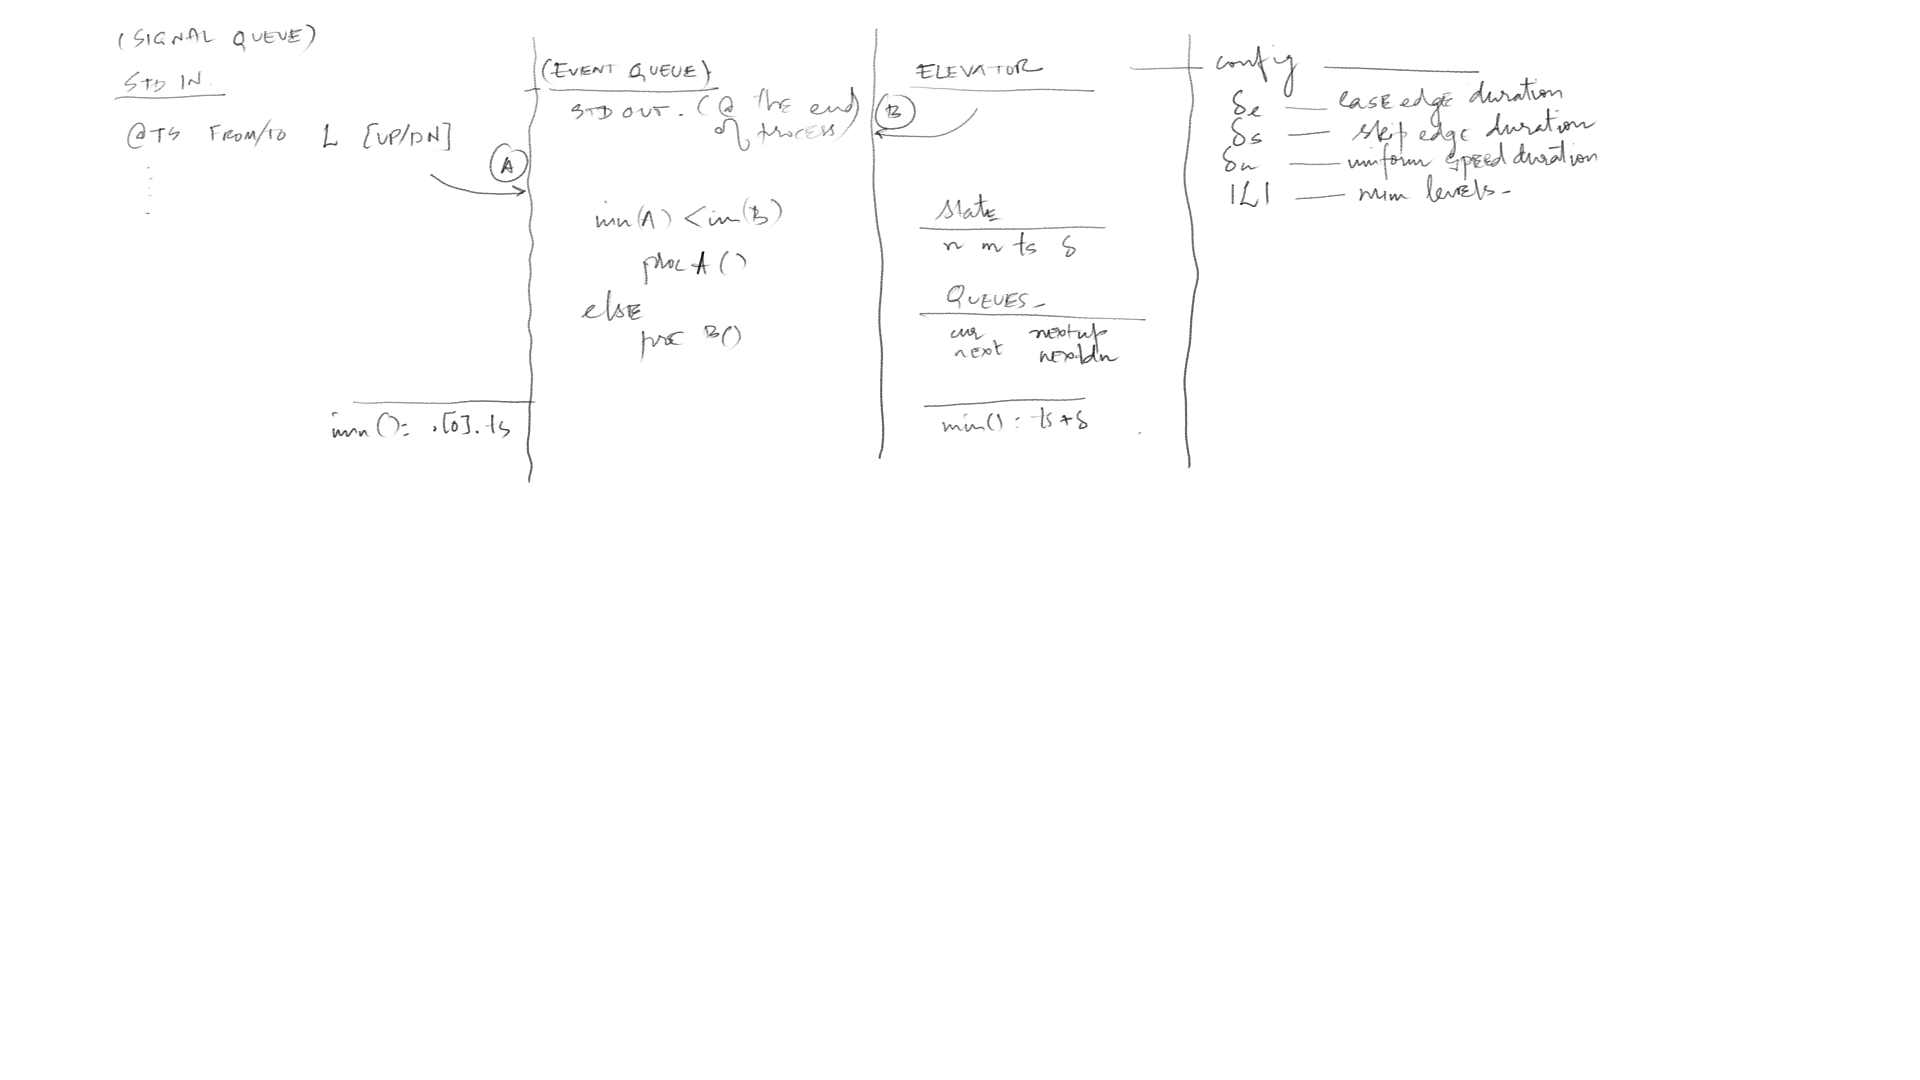 (SIGNAL QUEUE)
STD IN.
@TS FROM/TO L [UP/DN]
A
min() = .[0].ts
(EVENT QUEUE)
STD OUT. (@ the end
of process)
min(A) < min(B)
proc A()
else
proc B()
B
ELEVATOR
state
n m ts δ
QUEUES -
cur nextup
next nextdn
min() : ts + δ
config
δe — ease edge duration
δs — skip edge duration
δu — uniform speed duration
|L| — num levels -